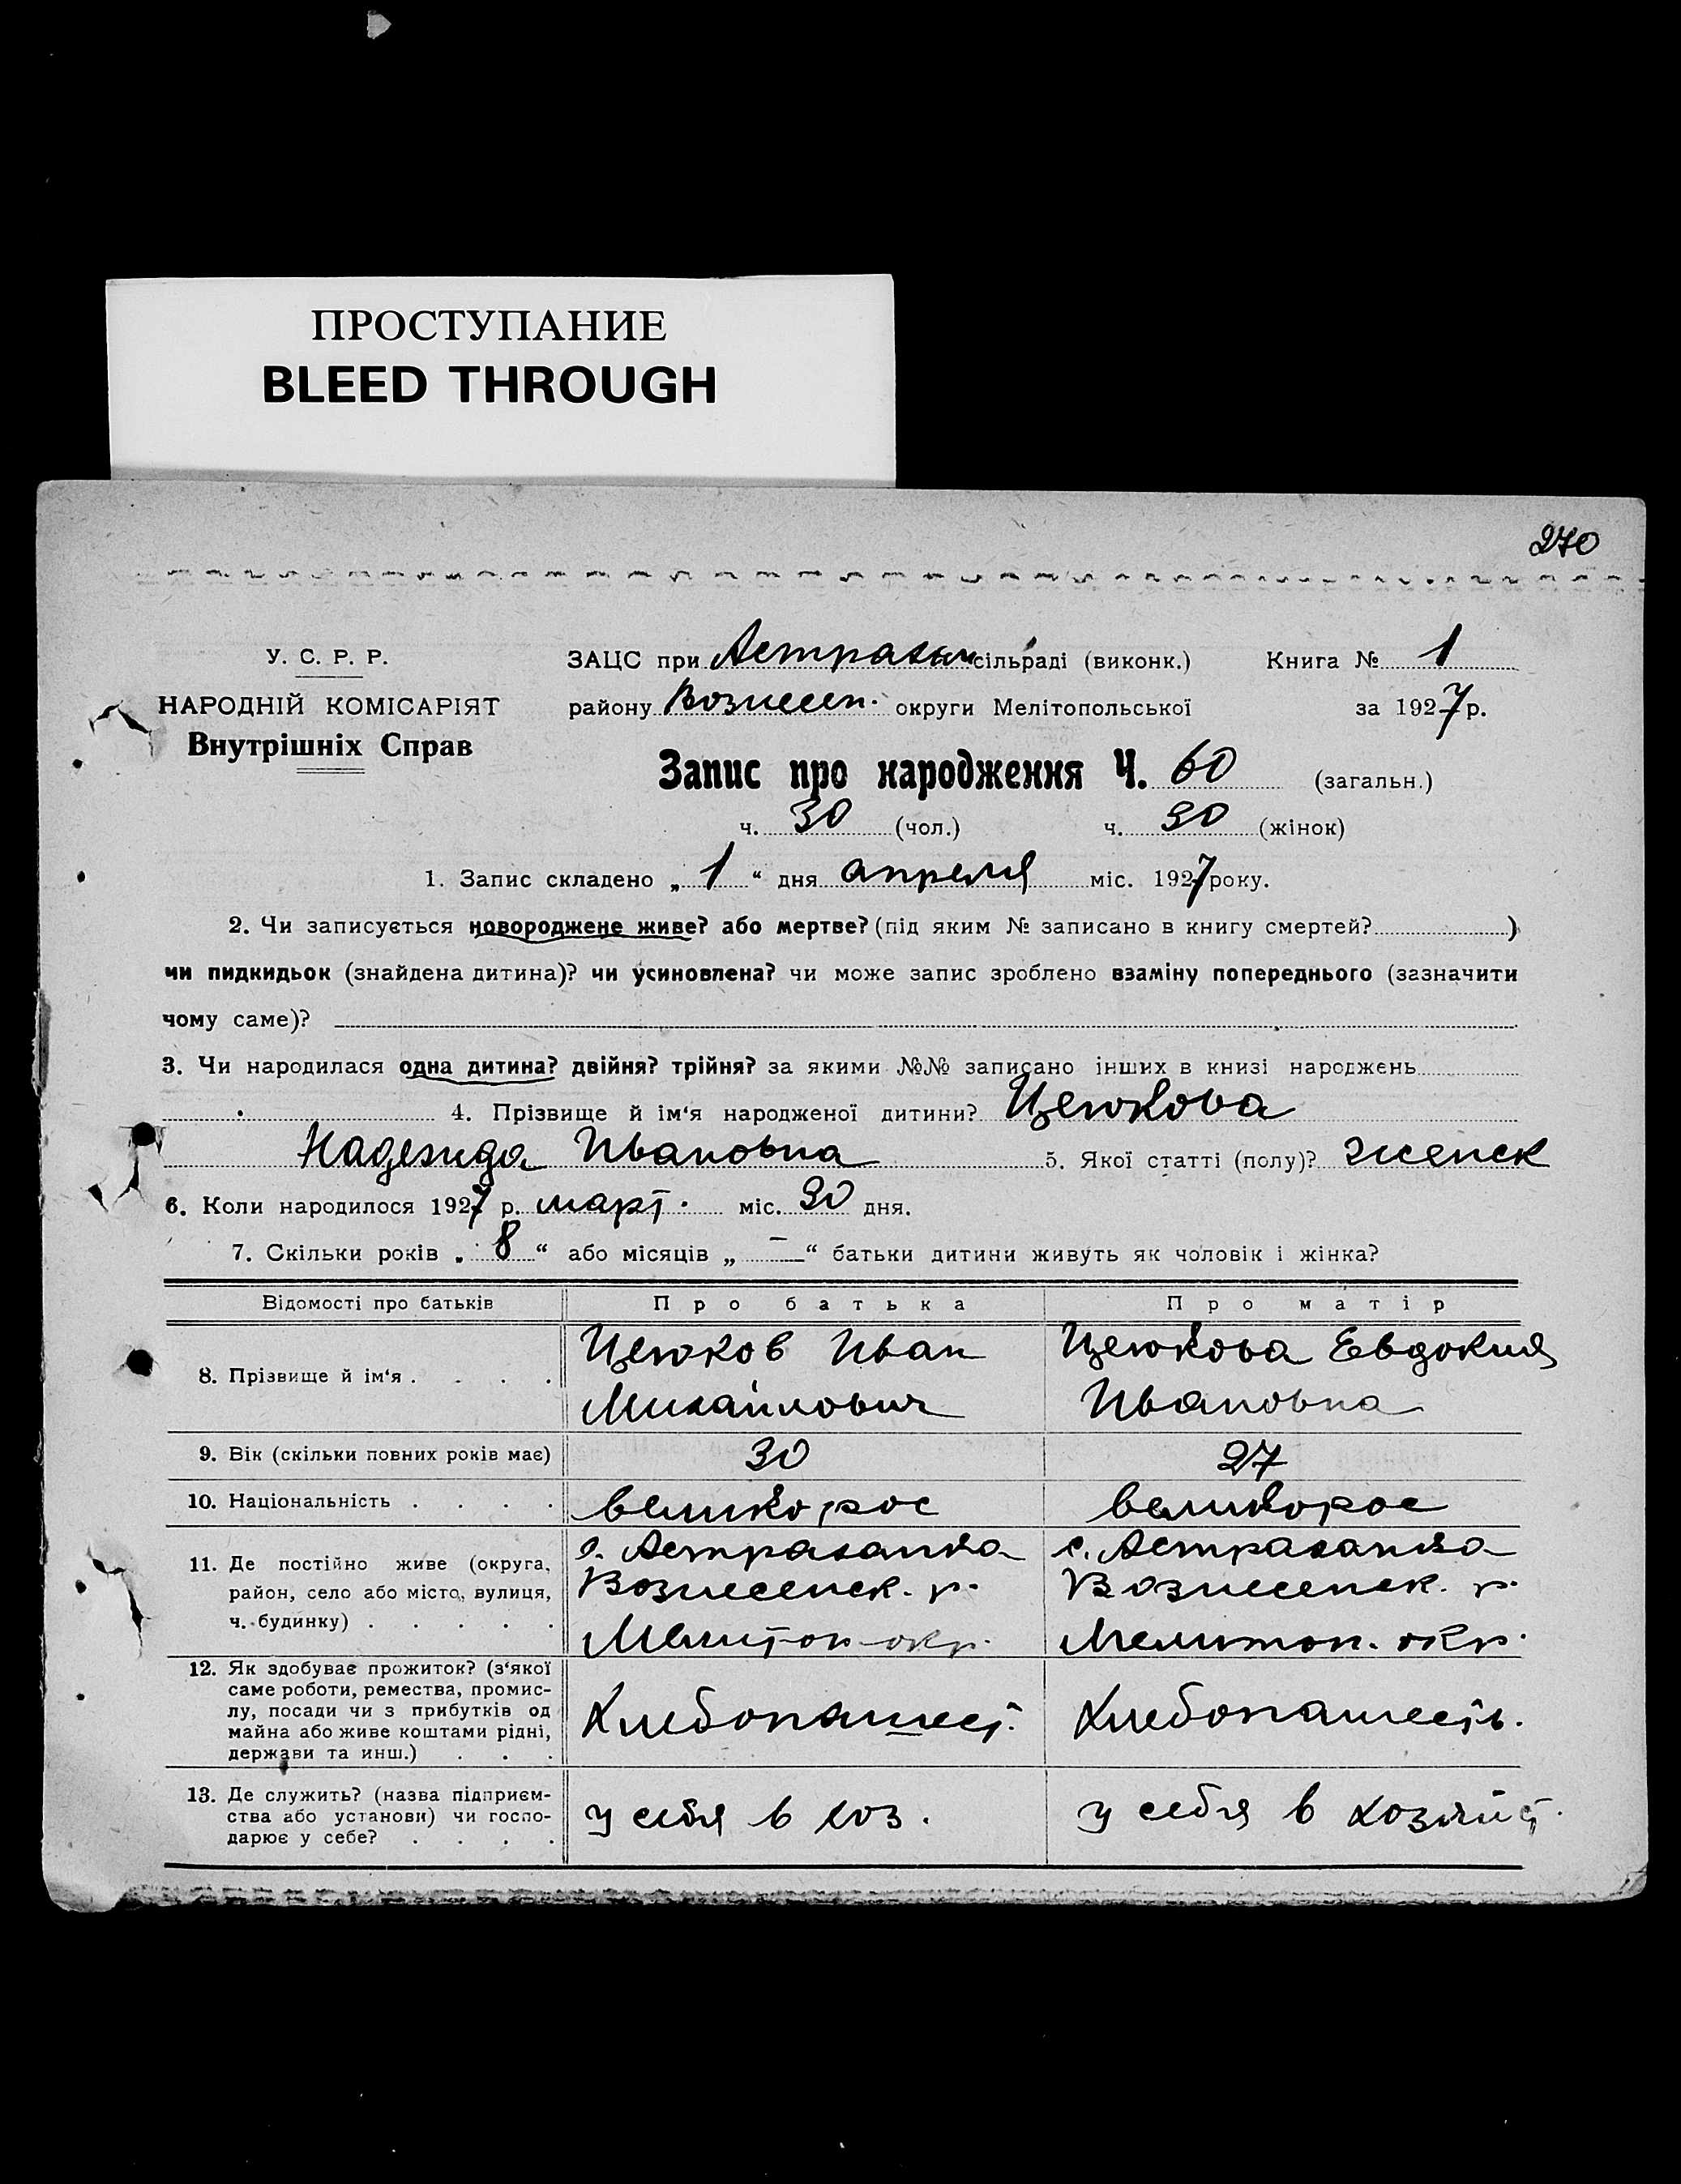 ПРОСТУПАНИЕ
BLEED THROUGH
270
У. С. Р. Р.
НАРОДНІЙ КОМІСАРІЯТ
Внутрішніх Справ
ЗАЦС при Астрахан сільраді (виконк.) Книга № 1
району Вознесен. округи Мелітопольської за 1927 р.
Запис про народження Ч. 60 (загальн.)
ч. 30 (чол.) ч. 30 (жінок)
1. Запис складено „ 1 “ дня апреля міс. 1927 року.
2. Чи записується новороджене живе? або мертве? (під яким № записано в книгу смертей? )
чи пидкидьок (знайдена дитина)? чи усиновлена? чи може запис зроблено взаміну попереднього (зазначити
чому саме)?
3. Чи народилася одна дитина? двійня? трійня? за якими №№ записано інших в книзі народжень
4. Прізвище й ім‘я народженої дитини? Цеюкова
Надежда Ивановна 5. Якої статті (полу)? женск
6. Коли народилося 1927 р. март. міс. 30 дня.
7. Скільки років „ 8 “ або місяців „ — “ батьки дитини живуть як чоловік і жінка?
Відомості про батьків Про батька Про матір
8. Прізвище й ім‘я . . . .
Цеюков Иван
Михайлович
Цеюкова Евдокия
Ивановна
9. Вік (скільки повних років має) 30 27
10. Національність . . . . великорос великорос
11. Де постійно живе (округа,
район, село або місто, вулиця,
ч. будинку) . . . . .
с. Астраханка
Вознесенск. р.
Мелитоп окр.
с. Астраханка
Вознесенск. р.
Мелитоп. окр.
12. Як здобуває прожиток? (з‘якої
саме роботи, ремества, промис-
лу, посади чи з прибутків од
майна або живе коштами рідні,
держави та инш.) . . .
Хлебопашест.
Хлебопашесть.
13. Де служить? (назва підприєм-
ства або установи) чи госпо-
дарює у себе? . . . .
у себя в хоз.
у себя в хозяйст.